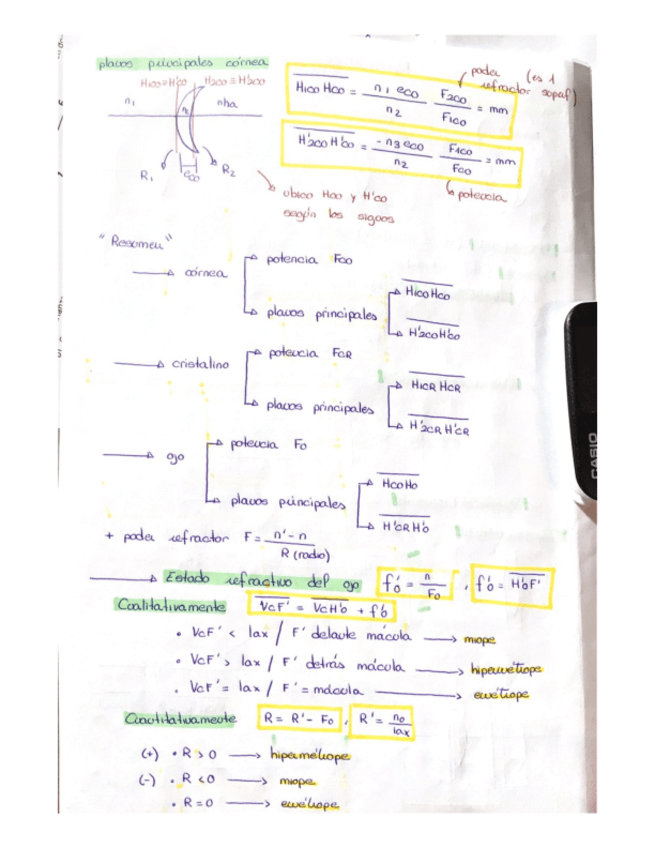 planos principales córnea
H1co≡H'co H2co≡H'2co
n1 n2 nha
R1 eco R2
H1co Hco = n1 eco / n2 · F2co / F1co = mm
poder refractor (es 1 sopaf)
H'2co H'co = -n3 eco / n2 · F1co / Fco = mm
potencia
ubico Hco y H'co
según los signos
"Resumen"
córnea
potencia Fco
planos principales
H1co Hco
H'2co H'co
cristalino
potencia FCR
planos principales
H1CR HCR
H'2CR H'CR
ojo
potencia Fo
planos principales
Hco Ho
H'CR H'o
+ poder refractor F = n' - n / R (radio)
Estado refractivo del ojo f'o = n / Fo , f'o = H'oF'
Cualitativamente VcF' = VcH'o + f'o
• VcF' < lax / F' delante mácula → miope
• VcF' > lax / F' detrás mácula → hipermétrope
• VcF' = lax / F' = mácula → emétrope
Cuantitativamente R = R' - Fo , R' = no / lax
(+) • R > 0 → hipermétrope
(-) • R < 0 → miope
• R = 0 → emétrope
CASIO